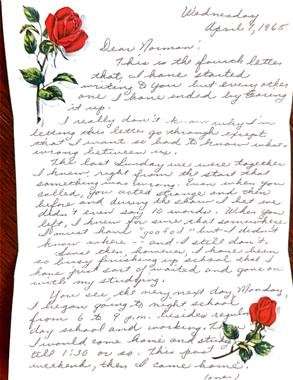 Wednesday
April 7, 1965
Dear Norman:
This is the fourth letter
that I have started
writing to you but every other
one I have ended by tearing
it up.
I really don't know why I'm
letting this letter go through except
that I want so bad to know what's
wrong between us.
The last Sunday we were together
I knew right from the start that
something was wrong. Even when you
called. You acted strange and then
before and during the show I bet we
didn't even say 10 words. When you
left, I knew for sure that somewhere
I must have "goofed" but I didn't
know where -- and I still don't.
Since then, however, I have been
so busy finishing up school that I
have just sort of waited and gone on
with my studying.
You see, the very next day, Monday,
I began going to night school
from 6 to 9 p.m. besides regular
day school and working. Then
I would come home and study
till 1:30 or so. This past
weekend, then I came home.
(over)